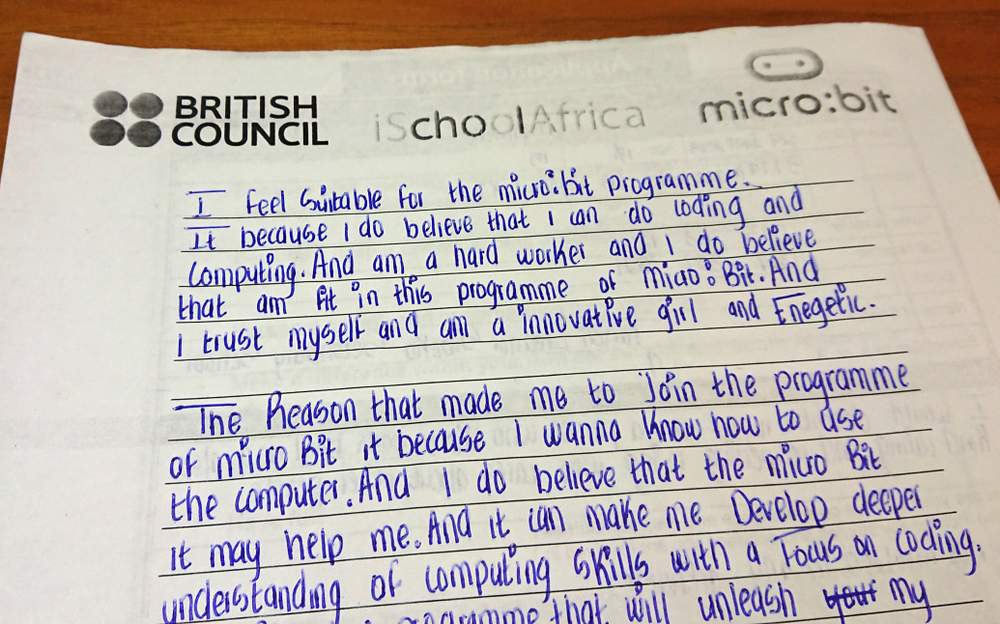 BRITISH
COUNCIL
iSchoolAfrica
micro:bit
I feel suitable for the micro:bit programme.
It because I do believe that I can do coding and
computing. And am a hard worker and I do believe
that am fit in this programme of micro:Bit. And
I trust myself and am a innovative girl and Enegetic.
The Reason that made me to join the programme
of micro Bit it because I wanna know how to use
the computer. And I do believe that the micro Bit
it may help me. And it can make me Develop deeper
understanding of computing skills with a Focus on coding.
programme that will unleash your my